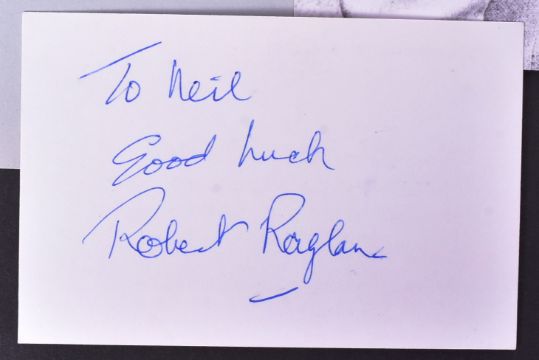 To Neil
Good Luck
Robert Raglan